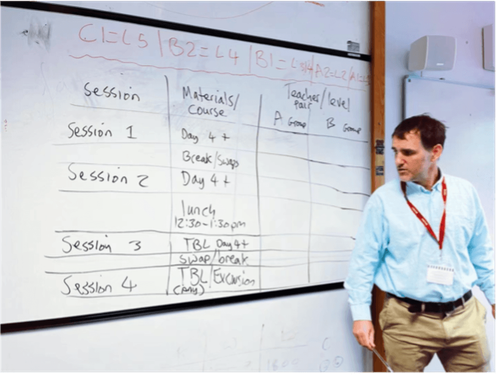 C1=L5 | B2=L4 | B1=L3/4 | A2=L2 | A1=
Session Materials/ Teacher/level
course pair
A Group B Group
Session 1 Day 4+
Break/swap
Session 2 Day 4+
lunch
12:30-1:30pm
Session 3 TBL Day4+
swap/break
Session 4 TBL/Excursion